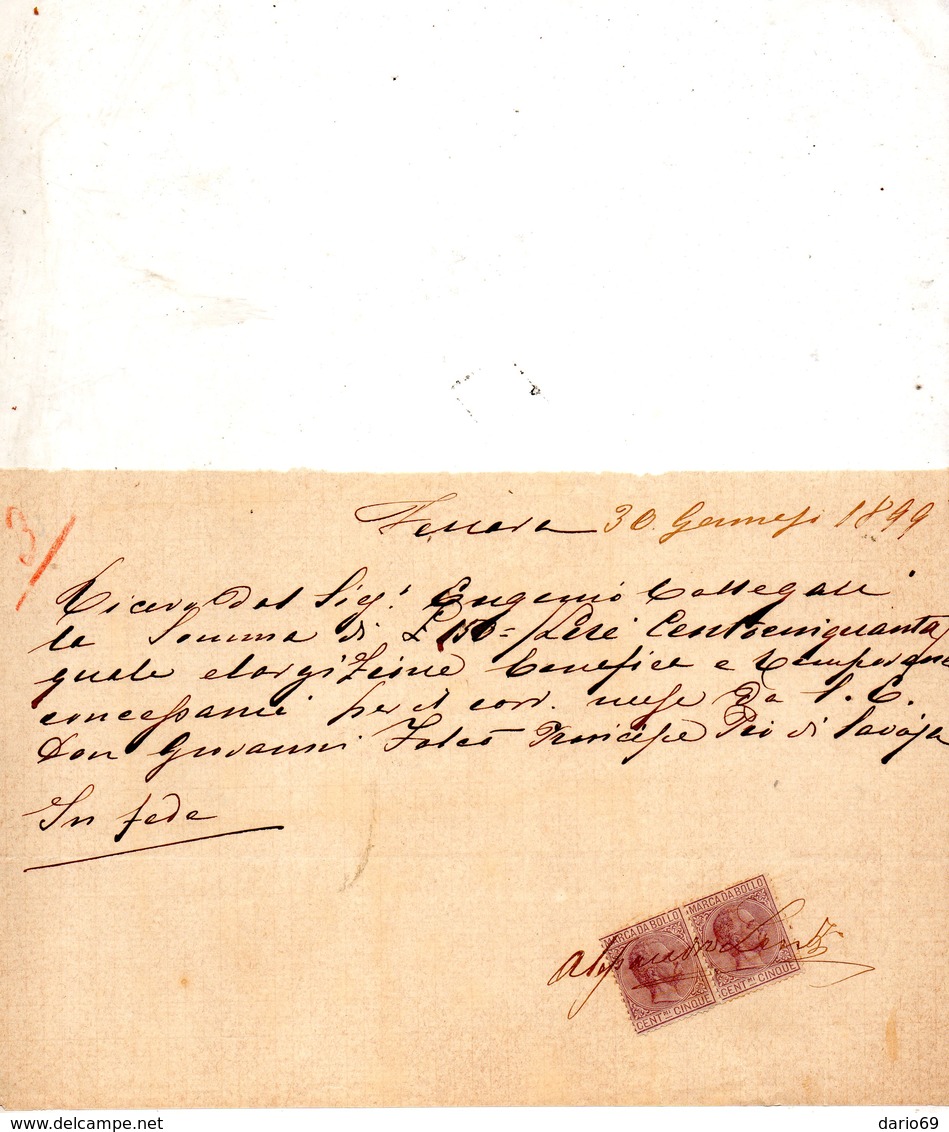 3/
Ferrara 30 Gennajo 1899
Ricevo dal Sigr. Eugenio
la Somma di £ 150= /Lire Centocinquanta/
quale elargizione benefica e
concessami per il corr. mese da S. E.
Don Giovanni Falcò Principe Pio di Savoja
In fede
Alessandro
MARCA DA BOLLO MARCA DA BOLLO
CENT.MI CINQUE CENT.MI CINQUE
delcampe.net
dario69